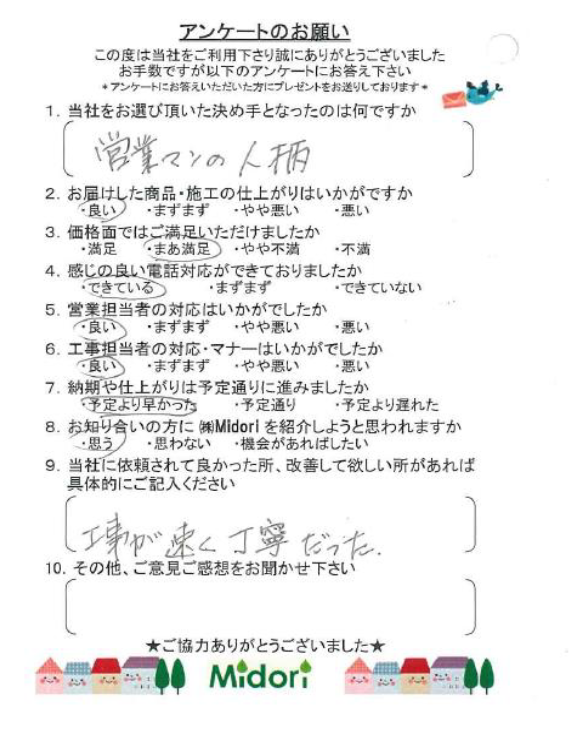 アンケートのお願い
この度は当社をご利用下さり誠にありがとうございました
お手数ですが以下のアンケートにお答え下さい
*アンケートにお答えいただいた方にプレゼントをお送りしております*
1. 当社をお選び頂いた決め手となったのは何ですか
営業マンの人柄
2. お届けした商品・施工の仕上がりはいかがですか
・良い ・まずまず ・やや悪い ・悪い
3. 価格面ではご満足いただけましたか
・満足 ・まあ満足 ・やや不満 ・不満
4. 感じの良い電話対応ができておりましたか
・できている ・まずまず ・できていない
5. 営業担当者の対応はいかがでしたか
・良い ・まずまず ・やや悪い ・悪い
6. 工事担当者の対応・マナーはいかがでしたか
・良い ・まずまず ・やや悪い ・悪い
7. 納期や仕上がりは予定通りに進みましたか
・予定より早かった ・予定通り ・予定より遅れた
8. お知り合いの方に㈱Midoriを紹介しようと思われますか
・思う ・思わない ・機会があればしたい
9. 当社に依頼されて良かった所、改善して欲しい所があれば
具体的にご記入ください
工事が速く丁寧だった.
10. その他、ご意見ご感想をお聞かせ下さい
★ご協力ありがとうございました★
Midori